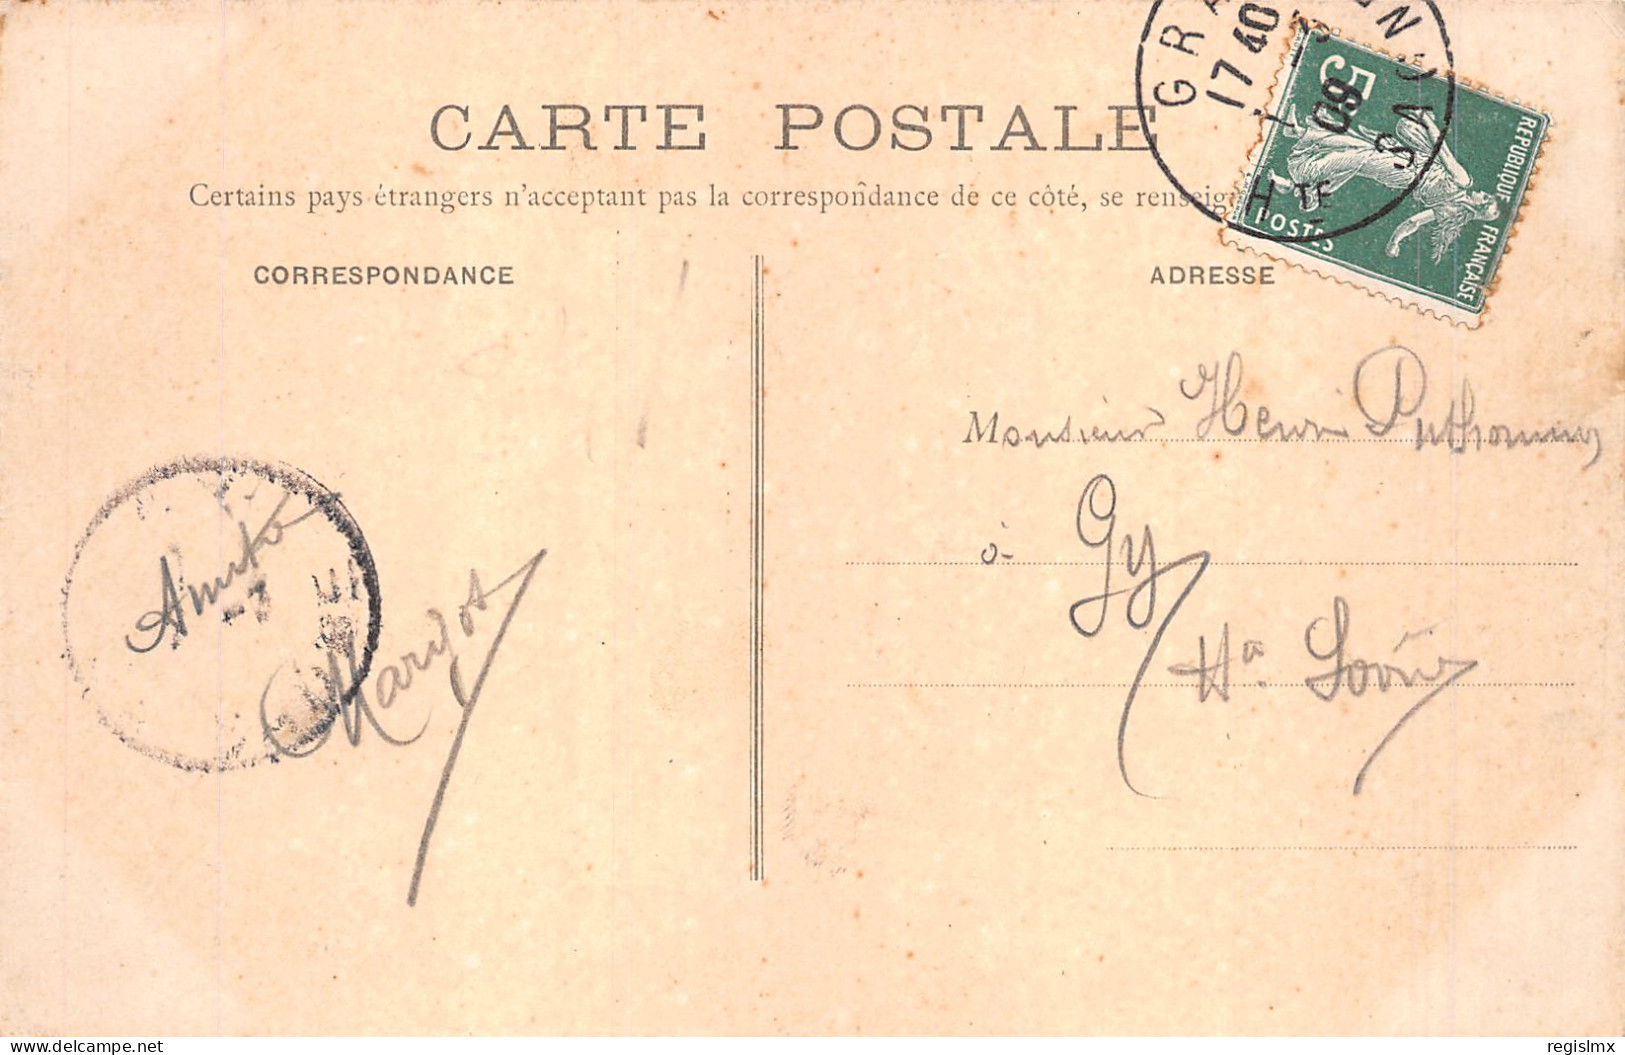 CARTE POSTALE
Certains pays étrangers n'acceptant pas la correspondance de ce côté, se renseig
CORRESPONDANCE
ADRESSE
17 40
09
H TE
5
REPUBLIQUE FRANÇAISE
POSTES
Monsieur Henri
à Gy
Hte Saône
Margot
delcampe.net
regislmx